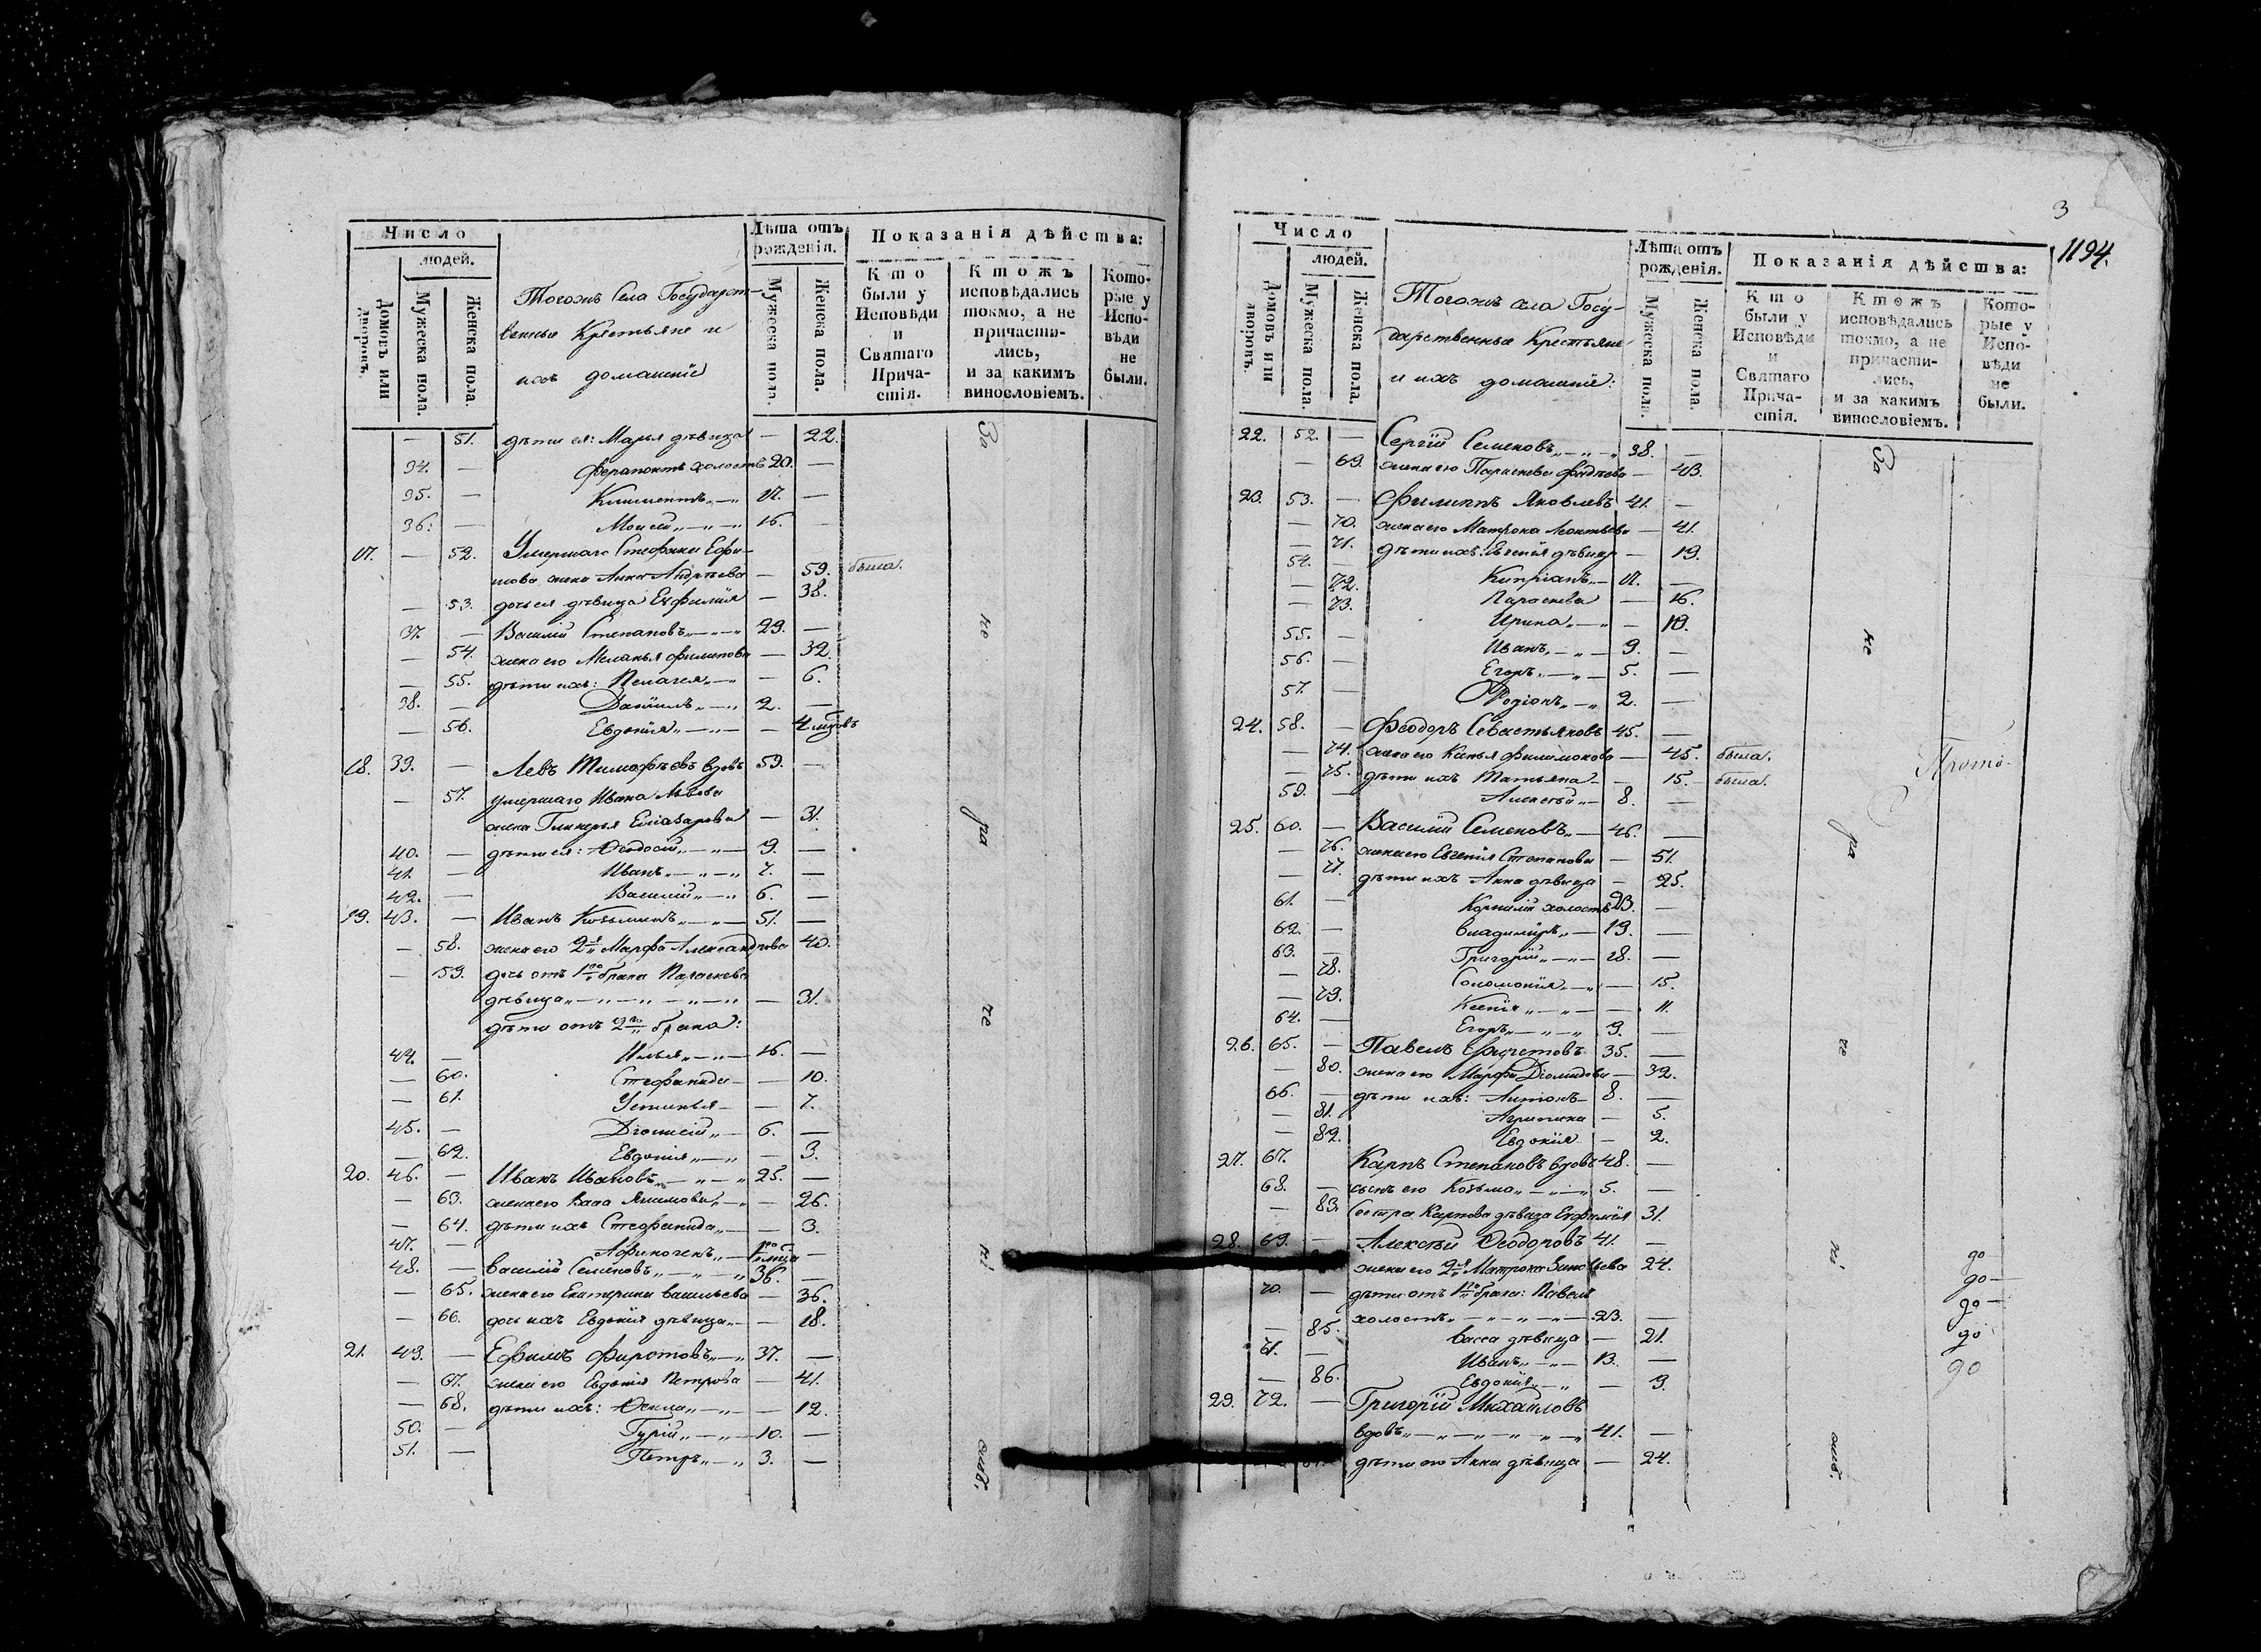 Число
людей.
Домовъ или дворовъ.
Мужеска пола.
Женска пола.
Тогожъ Села Государст-
венные Крестьяне и
ихъ домашніе
Лѣта отъ рожденія.
Мужеска пола.
Женска пола.
Показанія дѣйства:
Кто были у Исповѣди и Святаго Причастія.
Ктожъ исповѣдались токмо, а не причастились, и за какимъ винословіемъ.
Которые у Исповѣди не были.
— 51. дѣти ея: Марья дѣвица — 22.
34. — Ферапонтъ холостъ 20. —
35. — Климентъ 17. —
36. — Моисей 16. —
17. — 52. Умершаго Стефана Ефи-
мова жена Анна Андреева — 59. была.
— 53. дочь ея дѣвица Евфимія — 38.
37. — Василій Степановъ 29. —
— 54. жена его Меланья Филипова — 32.
— 55. дѣти ихъ: Пелагея — 6.
38. — Даніилъ 2. —
— 56. Евдокія — 4 мцовъ
18. 39. — Левъ Тимофѣевъ вдовъ 59. —
— 57. умершаго Ивана Львова
жена Гликерья Елиазарова — 31.
40. — дѣти ея: Ѳеодосій 9. —
41. — Иванъ 7. —
42. — Василій 6. —
19. 43. — Иванъ Козьминъ 51. —
— 58. жена его 2я Марфа Александрова 40.
— 59. дочь отъ 1го брака Параскева
дѣвица — 31.
дѣти отъ 2го брака:
44. — Илья 16. —
— 60. Стефанида — 10.
— 61. Устинья — 7.
45. — Діонисій 6. —
— 62. Евдокія — 3.
20. 46. — Иванъ Ивановъ 25. —
— 63. жена его Васа Якимова — 26.
— 64. дѣти ихъ Стефанида — 3.
47. — Афиногенъ
48. — Василій Семеновъ 36. —
— 65. жена его Екатерина Васильева — 36.
— 66. дочь ихъ Евдокія дѣвица — 18.
21. 49. — Ефимъ Фиротовъ 37. —
— 67. жена его Евдокія Петрова — 41.
— 68. дѣти ихъ: Ѳекла — 12.
50. — Гурій 10. —
51. — Петръ 3. —
За
не
ра
че
ні
емъ.
3
1194.
Число
людей.
Домовъ или дворовъ.
Мужеска пола.
Женска пола.
Тогожъ села Госу-
дарственные Крестьяне
и ихъ домашніе:
Лѣта отъ рожденія.
Мужеска пола.
Женска пола.
Показанія дѣйства:
Кто были у Исповѣди и Святаго Причастія.
Ктожъ исповѣдались токмо, а не причастились, и за какимъ винословіемъ.
Которые у Исповѣди не были.
22. 52. — Сергій Семеновъ 38. —
— 69. жена его Параскева Фадѣева — 43.
23. 53. — Филиппъ Яковлевъ 41. —
— 70. жена его Матрона Леонтьева — 41.
— 71. дѣти ихъ: Евгенія дѣвица — 19.
54. — Кипріанъ 17. —
— 72. Параскева — 16.
— 73. Ирина —
55. — Иванъ 9. —
56. — Егоръ 5. —
57. — Родіонъ 2. —
24. 58. — Феодоръ Севастьяновъ 45. —
— 74. жена его Филимонова — 45. была.
— 75. дѣти ихъ Татьяна — 15. была.
59. — Алексѣй 8. —
25. 60. — Василій Семеновъ 46. —
— 76. жена его Евгенія Степанова — 51.
— 77. дѣти ихъ Анна дѣвица — 25.
61. — Корнилій холостъ 23. —
62. — Владимиръ 19. —
63. — Григорій 18. —
— 78. Соломонія — 15.
— 79. Ксенія — 11.
64. — Егоръ 9. —
26. 65. — Павелъ 35. —
— 80. жена его Марфа Діомидова — 32.
66. — дѣти ихъ: Антонъ 8. —
— 81. Агрипина — 5.
— 82. Евдокія — 2.
27. 67. Карпъ Степановъ вдовъ 48. —
68. — сынъ его Козьма 5. —
— 83. Сестра Карпова дѣвица Евфимія 31.
28. 69. — Алексѣй Ѳеодоровъ 41. —
жена его 2я Матрона Зиновьева 24. до
70. — дѣти отъ 1го брака: Павелъ до
холостъ 23. — до
— 85. Васса дѣвица — 21. до
71. — Иванъ 13. — до
— 86. Евдокія — 9.
29. 72. — Григорій Михайловъ
вдовъ 41. —
дѣти его Анна дѣвица — 24.
За
не
ра
че
ні
емъ.